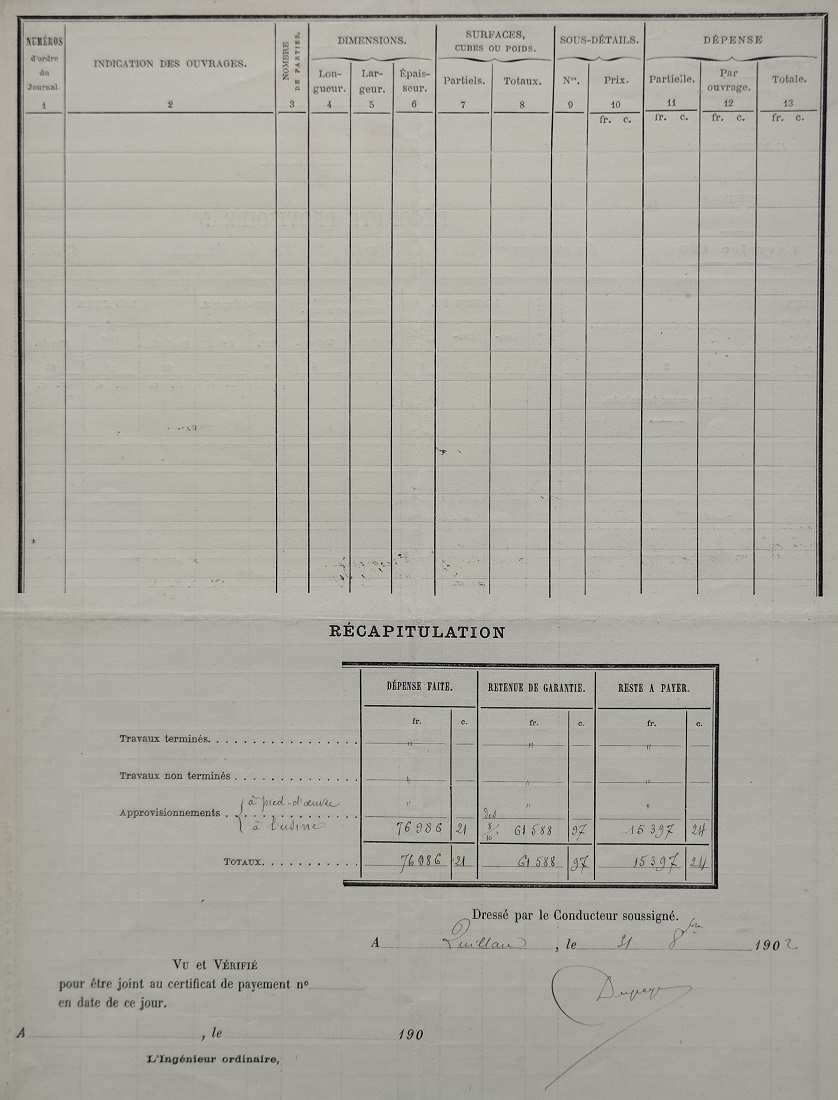 NUMÉROS d'ordre du Journal.
INDICATION DES OUVRAGES.
NOMBRE DE PARTIES.
DIMENSIONS.
Lon-gueur.
Lar-geur.
Épais-seur.
SURFACES, CUBES OU POIDS.
Partiels.
Totaux.
SOUS-DÉTAILS.
Nos.
Prix.
DÉPENSE
Partielle.
Par ouvrage.
Totale.
1 2 3 4 5 6 7 8 9 10 11 12 13
fr. c. fr. c. fr. c. fr. c.
RÉCAPITULATION
DÉPENSE FAITE. RETENUE DE GARANTIE. RESTE A PAYER.
fr. c. fr. c. fr. c.
Travaux terminés. " " "
Travaux non terminés " " "
Approvisionnements { à pied-d'œuvre " " "
{ à l'usine 76986 21 des 8/10 61588 97 15397 24
TOTAUX. 76986 21 61588 97 15397 24
Dressé par le Conducteur soussigné.
A Quillan, le 31 8bre 1902
VU et VÉRIFIÉ
pour être joint au certificat de payement no
en date de ce jour.
A , le 190
L'Ingénieur ordinaire,